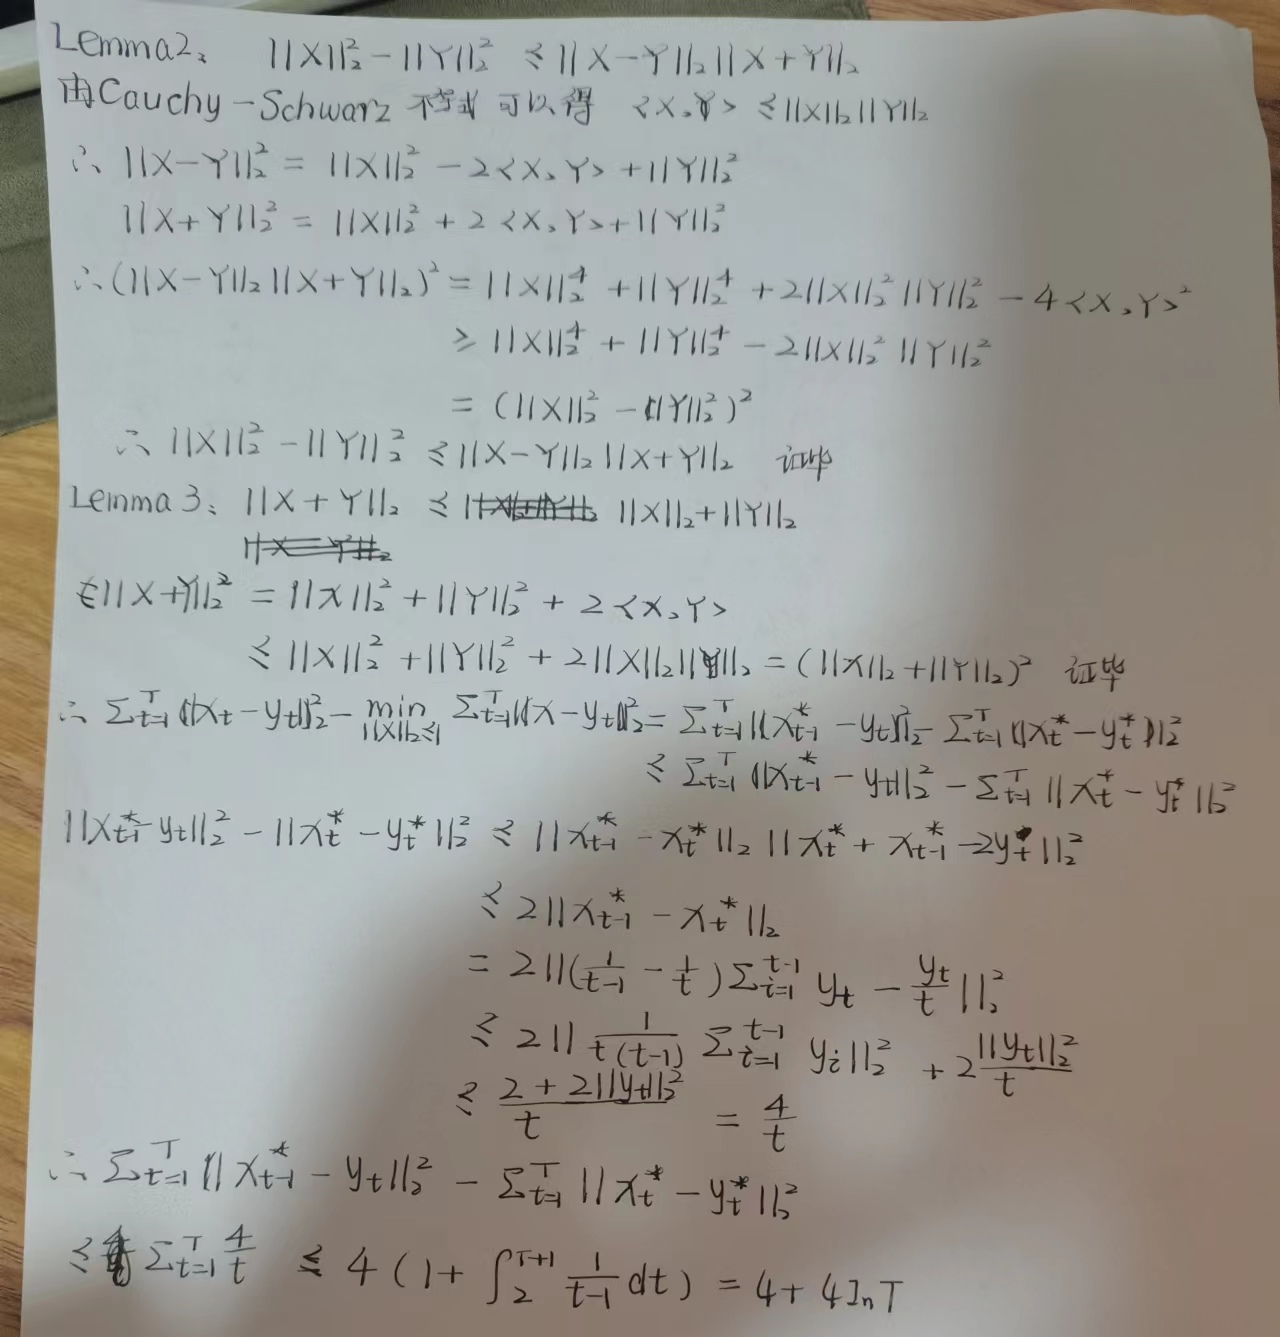 Lemma2: ||X||₂² - ||Y||₂² ≤ ||X-Y||₂ ||X+Y||₂
由Cauchy-Schwarz 不等式 可以得 <X,Y> ≤ ||X||₂ ||Y||₂
∴ ||X-Y||₂² = ||X||₂² - 2<X,Y> + ||Y||₂²
||X+Y||₂² = ||X||₂² + 2<X,Y> + ||Y||₂²
∴ (||X-Y||₂ ||X+Y||₂)² = ||X||₂⁴ + ||Y||₂⁴ + 2||X||₂² ||Y||₂² - 4<X,Y>²
≥ ||X||₂⁴ + ||Y||₂⁴ - 2||X||₂² ||Y||₂²
= (||X||₂² - ||Y||₂²)²
∴ ||X||₂² - ||Y||₂² ≤ ||X-Y||₂ ||X+Y||₂ 证毕
Lemma 3: ||X+Y||₂ ≤ ||X||₂ + ||Y||₂
||X+Y||₂² = ||X||₂² + ||Y||₂² + 2<X,Y>
≤ ||X||₂² + ||Y||₂² + 2||X||₂||Y||₂ = (||X||₂ + ||Y||₂)² 证毕
∴ Σ_{t=1}^T ||x_t - y_t||₂² - min_{||X||₂≤1} Σ_{t=1}^T ||x - y_t||₂² = Σ_{t=1}^T ||x_{t-1}^* - y_t||₂² - Σ_{t=1}^T ||x_t^* - y_t^*||₂²
≤ Σ_{t=1}^T ||x_{t-1}^* - y_t||₂² - Σ_{t=1}^T ||x_t^* - y_t^*||₂²
||x_{t-1}^* - y_t||₂² - ||x_t^* - y_t^*||₂² ≤ ||x_{t-1}^* - x_t^*||₂ ||x_t^* + x_{t-1}^* - 2y_t||₂²
≤ 2||x_{t-1}^* - x_t^*||₂
= 2||(1/(t-1) - 1/t) Σ_{i=1}^{t-1} y_t - y_t/t||₂²
≤ 2|| 1/(t(t-1)) Σ_{i=1}^{t-1} y_i||₂² + 2 ||y_t||₂²/t
≤ (2 + 2||y_t||₂²)/t = 4/t
∴ Σ_{t=1}^T ||x_{t-1}^* - y_t||₂² - Σ_{t=1}^T ||x_t^* - y_t^*||₂²
≤ Σ_{t=1}^T 4/t ≤ 4(1 + ∫_2^{T+1} 1/(t-1) dt) = 4 + 4InT